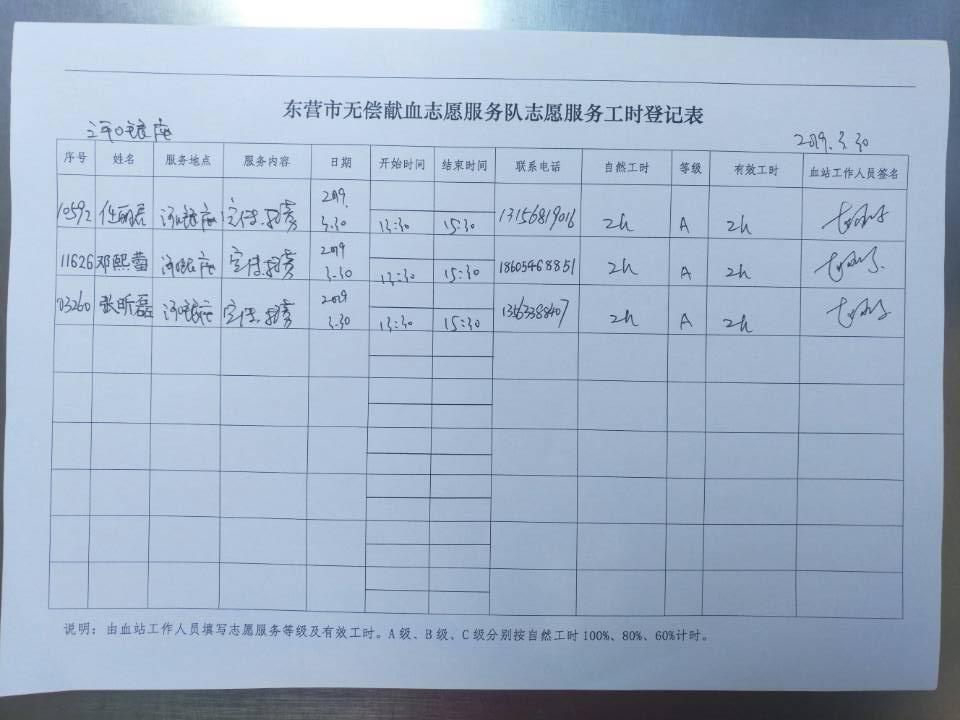 东营市无偿献血志愿服务队志愿服务工时登记表
河口银座 2019.3.30
序号 姓名 服务地点 服务内容 日期 开始时间 结束时间 联系电话 自然工时 等级 有效工时 血站工作人员签名
10592 任丽君 河口银座 宣传招募 2019.3.30 13:30 15:30 13156819016 2h A 2h
11626 邓熙蕾 河口银座 宣传招募 2019 3.30 13:30 15:30 18605468851 2h A 2h
03260 张昕磊 河口银座 宣传招募 2019 3.30 13:30 15:30 13563388407 2h A 2h
说明：由血站工作人员填写志愿服务等级及有效工时。A级、B级、C级分别按自然工时100%、80%、60%计时。